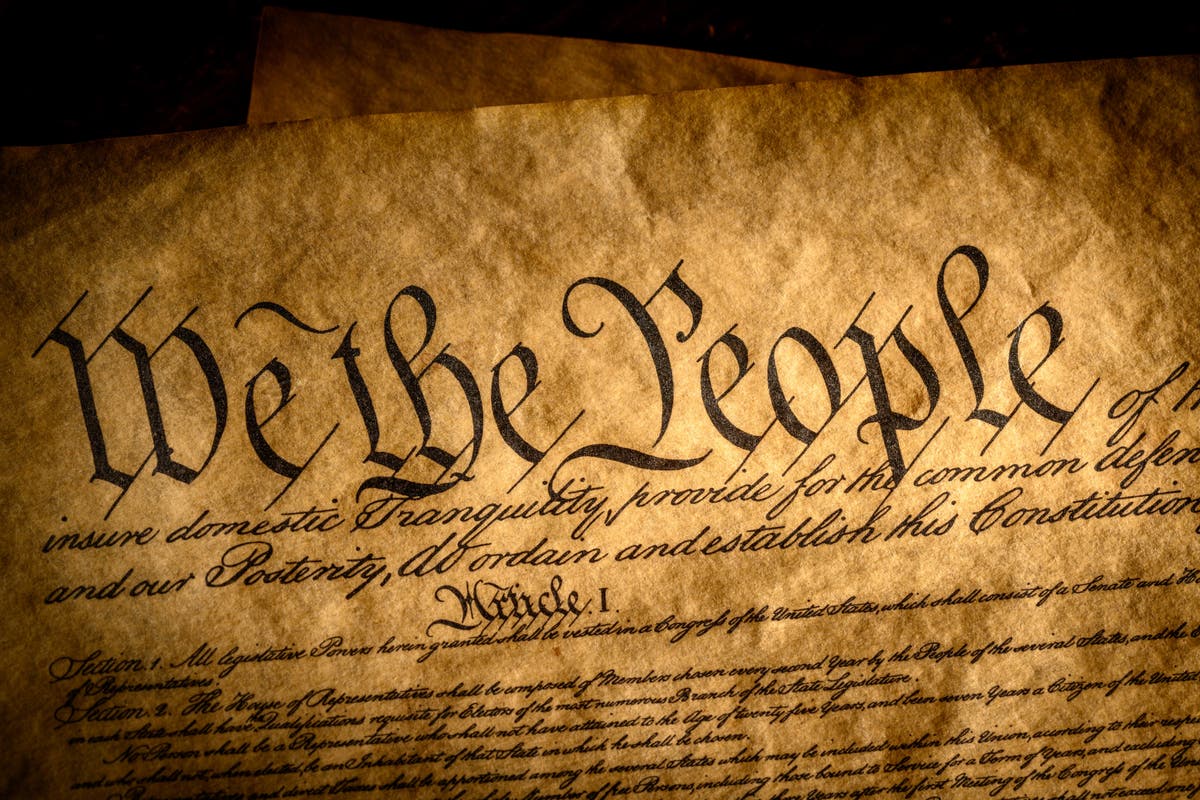 We the People of
insure domestic Tranquility, provide for the common defen
and our Posterity, do ordain and establish this Constitution
Article. I.
Section. 1. All legislative Powers herein granted shall be vested in a Congress of the United States, which shall consist of a Senate and Ho
of Representatives.
Section. 2. The House of Representatives shall be composed of Members chosen every second Year by the People of the several States, and the
in each State shall have the Qualifications requisite for Electors of the most numerous Branch of the State Legislature.
No Person shall be a Representative who shall not have attained to the Age of twenty five Years, and been seven Years a Citizen of the United
and who shall not, when elected, be an Inhabitant of that State in which he shall be chosen.
and direct Taxes shall be apportioned among the several States which may be included within this Union, according to their respe
Number of free Persons, including those bound to Service for a Term of Years, and excluding
Years after the first Meeting of the Congress of the Uni
shall not exceed one